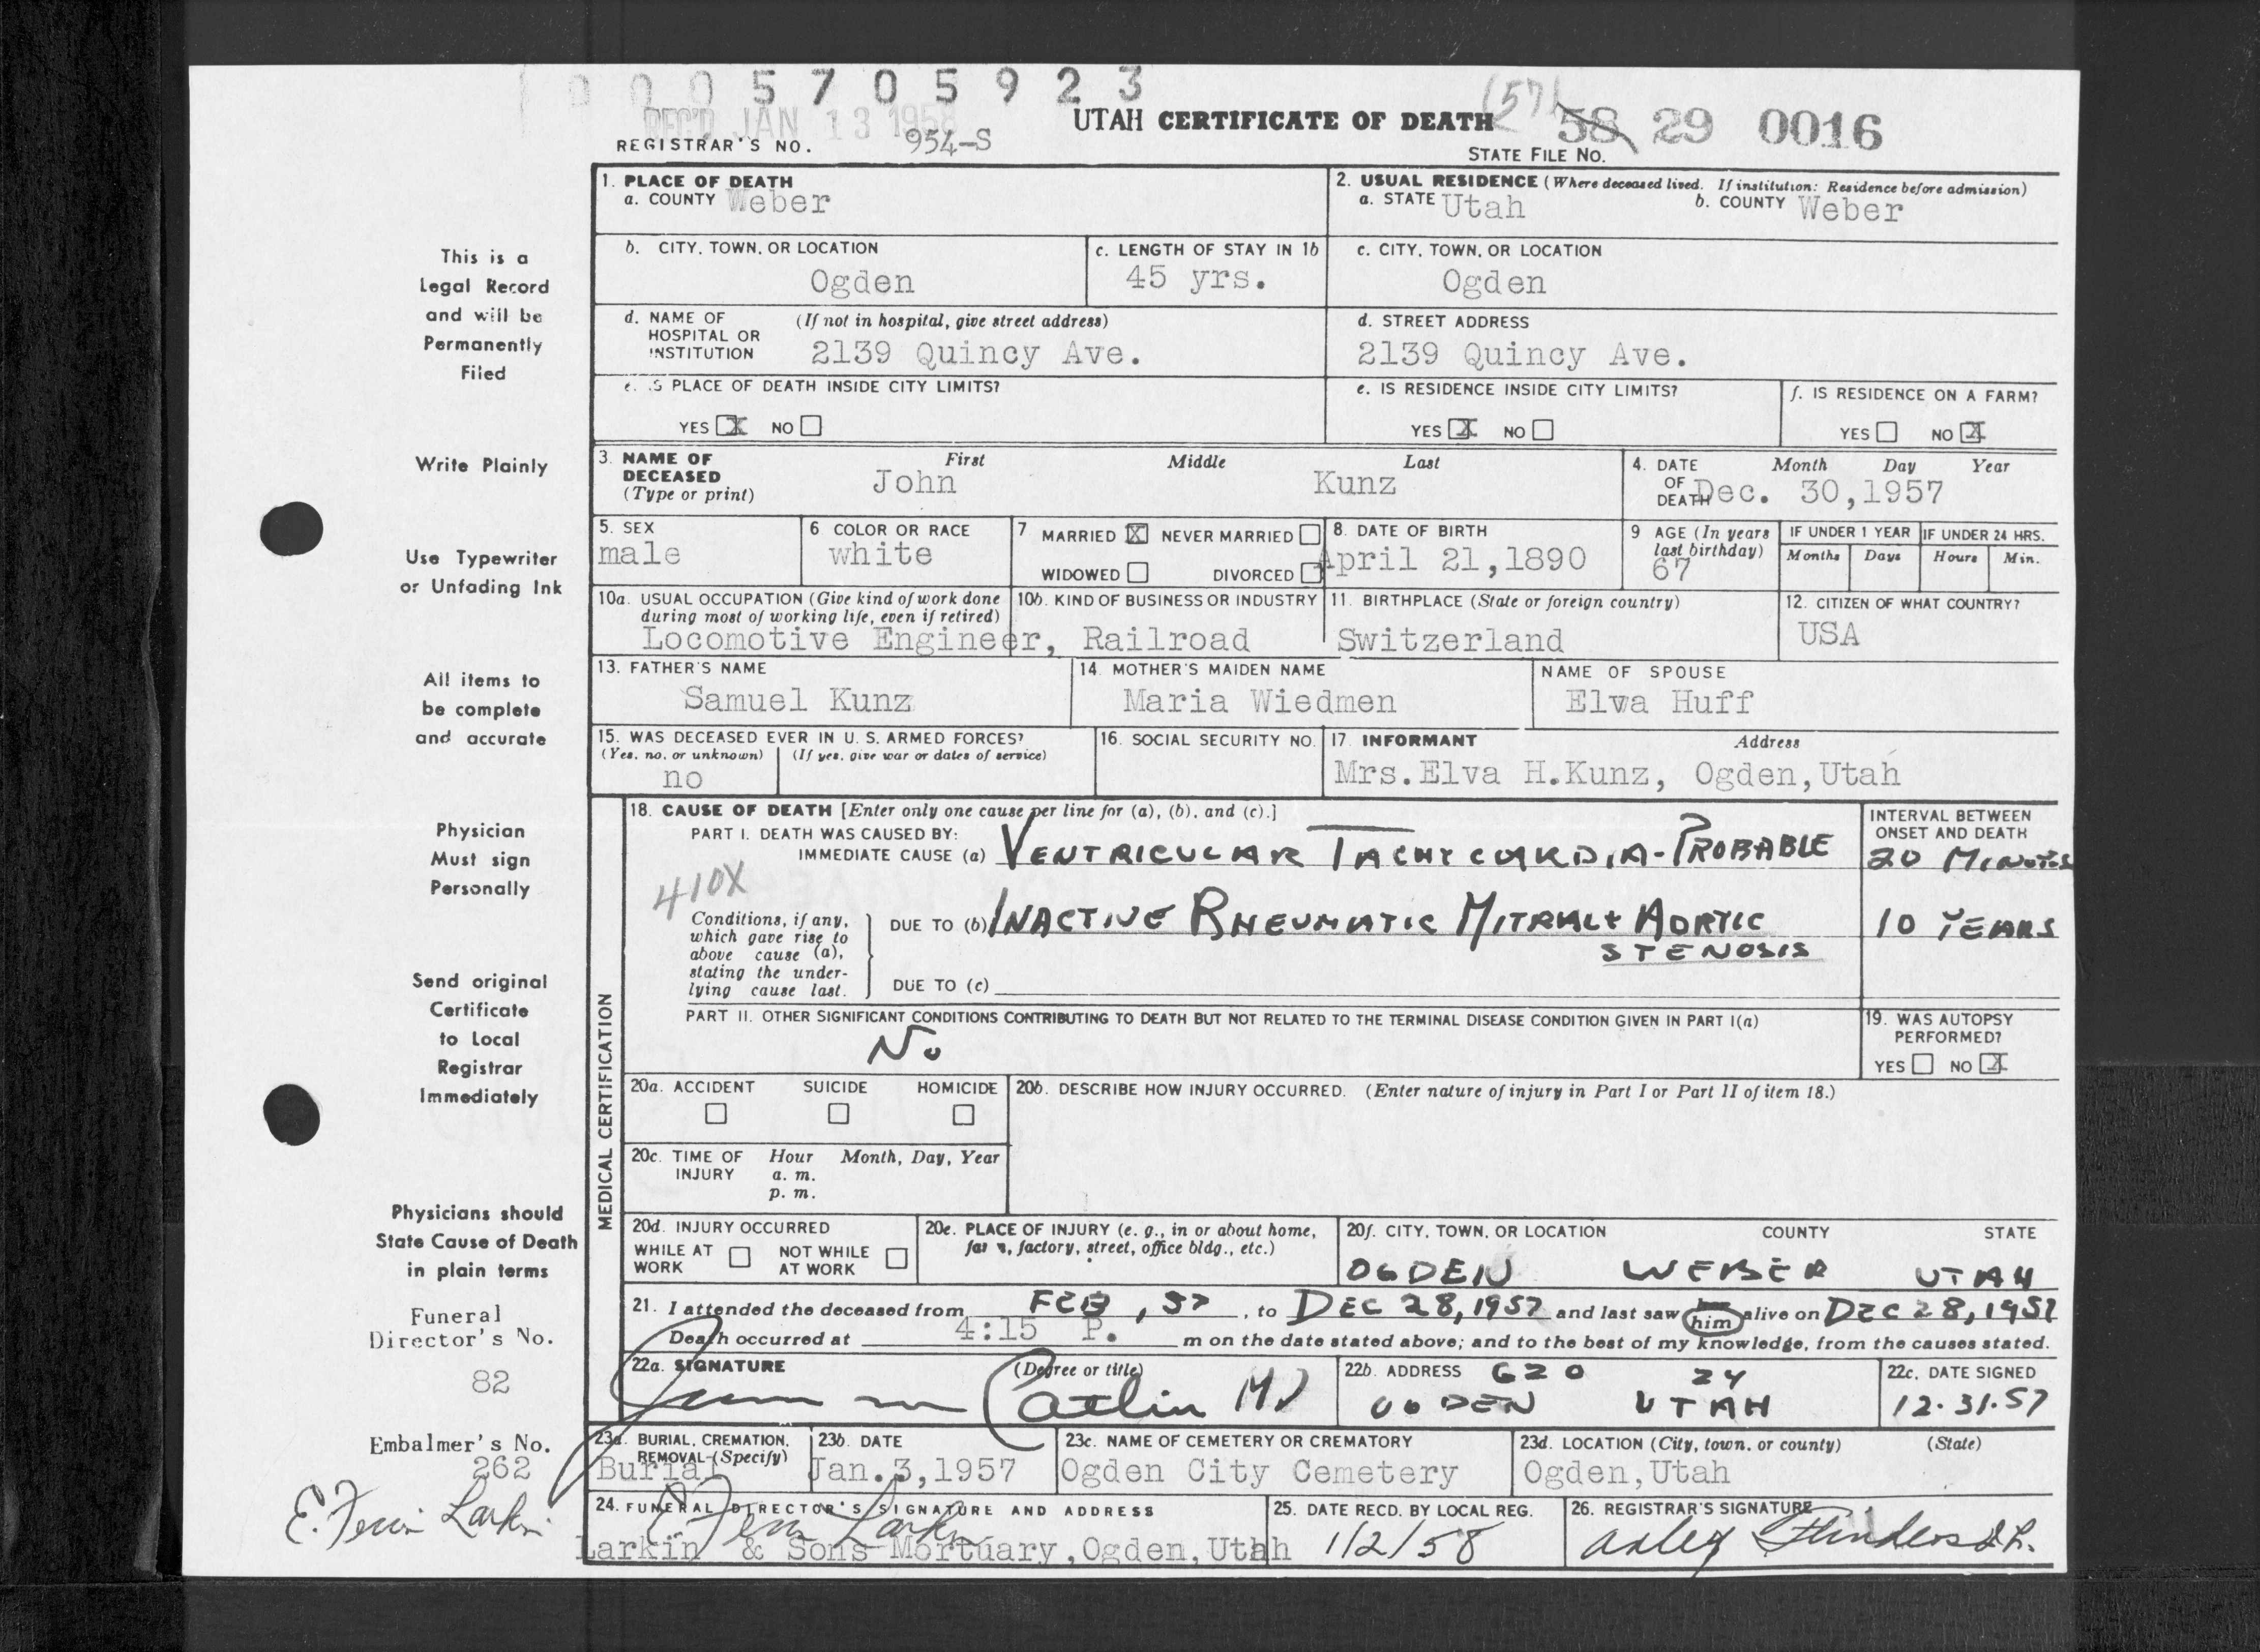 0005705923
REC'D JAN 13 1958
UTAH CERTIFICATE OF DEATH (57) 58 29 0016
REGISTRAR'S NO. 954-S
STATE FILE NO.
1. PLACE OF DEATH
a. COUNTY Weber
2. USUAL RESIDENCE (Where deceased lived. If institution: Residence before admission)
a. STATE Utah b. COUNTY Weber
b. CITY, TOWN, OR LOCATION
Ogden
c. LENGTH OF STAY IN 1b
45 yrs.
c. CITY, TOWN, OR LOCATION
Ogden
d. NAME OF HOSPITAL OR INSTITUTION (If not in hospital, give street address)
2139 Quincy Ave.
d. STREET ADDRESS
2139 Quincy Ave.
e. IS PLACE OF DEATH INSIDE CITY LIMITS?
YES X NO
e. IS RESIDENCE INSIDE CITY LIMITS?
YES X NO
f. IS RESIDENCE ON A FARM?
YES NO X
3. NAME OF DECEASED (Type or print)
First Middle Last
John Kunz
4. DATE OF DEATH Month Day Year
Dec. 30,1957
5. SEX
male
6 COLOR OR RACE
white
7 MARRIED X NEVER MARRIED
WIDOWED DIVORCED
8. DATE OF BIRTH
April 21,1890
9 AGE (In years last birthday)
67
IF UNDER 1 YEAR
Months Days
IF UNDER 24 HRS.
Hours Min.
10a. USUAL OCCUPATION (Give kind of work done during most of working life, even if retired)
10b. KIND OF BUSINESS OR INDUSTRY
Locomotive Engineer, Railroad
11. BIRTHPLACE (State or foreign country)
Switzerland
12. CITIZEN OF WHAT COUNTRY?
USA
13. FATHER'S NAME
Samuel Kunz
14. MOTHER'S MAIDEN NAME
Maria Wiedmen
NAME OF SPOUSE
Elva Huff
15. WAS DECEASED EVER IN U. S. ARMED FORCES?
(Yes, no, or unknown) (If yes, give war or dates of service)
no
16. SOCIAL SECURITY NO.
17. INFORMANT Address
Mrs.Elva H.Kunz, Ogden,Utah
MEDICAL CERTIFICATION
18. CAUSE OF DEATH [Enter only one cause per line for (a), (b), and (c).]
PART I. DEATH WAS CAUSED BY:
IMMEDIATE CAUSE (a) VENTRICULAR TACHYCARDIA-PROBABLE
INTERVAL BETWEEN ONSET AND DEATH
20 MINUTES
410X
Conditions, if any, which gave rise to above cause (a), stating the underlying cause last.
DUE TO (b) INACTIVE RHEUMATIC MITRAL + AORTIC
STENOSIS
10 YEARS
DUE TO (c)
PART II. OTHER SIGNIFICANT CONDITIONS CONTRIBUTING TO DEATH BUT NOT RELATED TO THE TERMINAL DISEASE CONDITION GIVEN IN PART I(a)
No
19. WAS AUTOPSY PERFORMED?
YES NO X
20a. ACCIDENT SUICIDE HOMICIDE
20b. DESCRIBE HOW INJURY OCCURRED. (Enter nature of injury in Part I or Part II of item 18.)
20c. TIME OF INJURY Hour Month, Day, Year
a. m.
p. m.
20d. INJURY OCCURRED
WHILE AT WORK NOT WHILE AT WORK
20e. PLACE OF INJURY (e. g., in or about home, farm, factory, street, office bldg., etc.)
20f. CITY, TOWN, OR LOCATION COUNTY STATE
OGDEN WEBER UTAH
21. I attended the deceased from FEB, 57, to DEC 28, 1957 and last saw him alive on DEC 28, 1957
Death occurred at 4:15 P. m on the date stated above; and to the best of my knowledge, from the causes stated.
22a. SIGNATURE (Degree or title)
Catlin MD
22b. ADDRESS 620 24
OGDEN UTAH
22c. DATE SIGNED
12.31.57
23a. BURIAL, CREMATION, REMOVAL (Specify)
Burial
23b. DATE
Jan.3,1957
23c. NAME OF CEMETERY OR CREMATORY
Ogden City Cemetery
23d. LOCATION (City, town, or county) (State)
Ogden,Utah
24. FUNERAL DIRECTOR'S SIGNATURE AND ADDRESS
Larkin & Sons Mortuary,Ogden,Utah
25. DATE RECD. BY LOCAL REG.
1/2/58
26. REGISTRAR'S SIGNATURE
This is a
Legal Record
and will be
Permanently
Filed
Write Plainly
Use Typewriter
or Unfading Ink
All items to
be complete
and accurate
Physician
Must sign
Personally
Send original
Certificate
to Local
Registrar
Immediately
Physicians should
State Cause of Death
in plain terms
Funeral
Director's No.
82
Embalmer's No.
262
E. Larkin